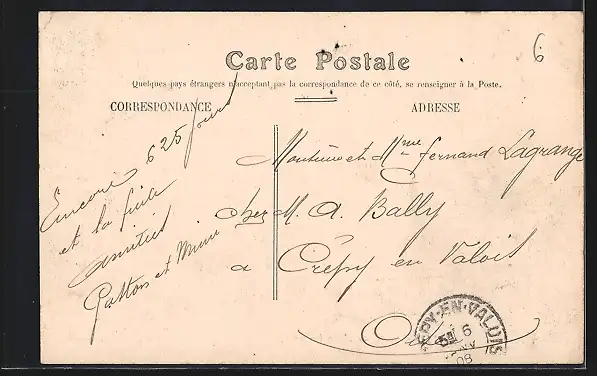 6
Carte Postale
Quelques pays étrangers n'acceptant pas la correspondance de ce côté, se renseigner à la Poste.
CORRESPONDANCE
ADRESSE
Encore 625 jours
et la
amitiés
et Mimi
Monsieur et Mme Fernand Lagrange
chez M. A. Bally
a Crépy en Valois
Oise
CRÉPY-EN-VALOIS
6
08